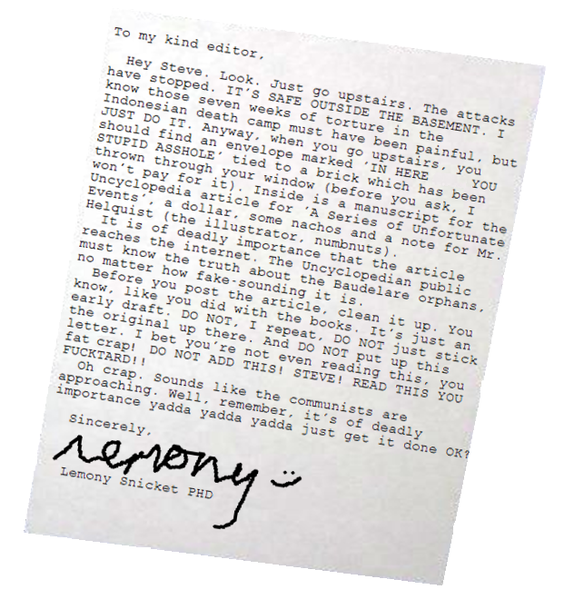 To my kind editor,
Hey Steve. Look. Just go upstairs. The attacks
have stopped. IT'S SAFE OUTSIDE THE BASEMENT. I
know those seven weeks of torture in the
Indonesian death camp must have been painful, but
JUST DO IT. Anyway, when you go upstairs, you
should find an envelope marked 'IN HERE YOU
STUPID ASSHOLE' tied to a brick which has been
thrown through your window (before you ask, I
won't pay for it). Inside is a manuscript for the
Uncyclopedia article for 'A Series of Unfortunate
Events', a dollar, some nachos and a note for Mr.
Helquist (the illustrator, numbnuts).
It is of deadly importance that the article
reaches the internet. The Uncyclopedian public
must know the truth about the Baudelare orphans,
no matter how fake-sounding it is.
Before you post the article, clean it up. You
know, like you did with the books. It's just an
early draft. DO NOT, I repeat, DO NOT just stick
the original up there. And DO NOT put up this
letter. I bet you're not even reading this, you
fat crap! DO NOT ADD THIS! STEVE! READ THIS YOU
FUCKTARD!!
Oh crap. Sounds like the communists are
approaching. Well, remember, it's of deadly
importance yadda yadda yadda just get it done OK?
Sincerely,
Lemony :)
Lemony Snicket PHD